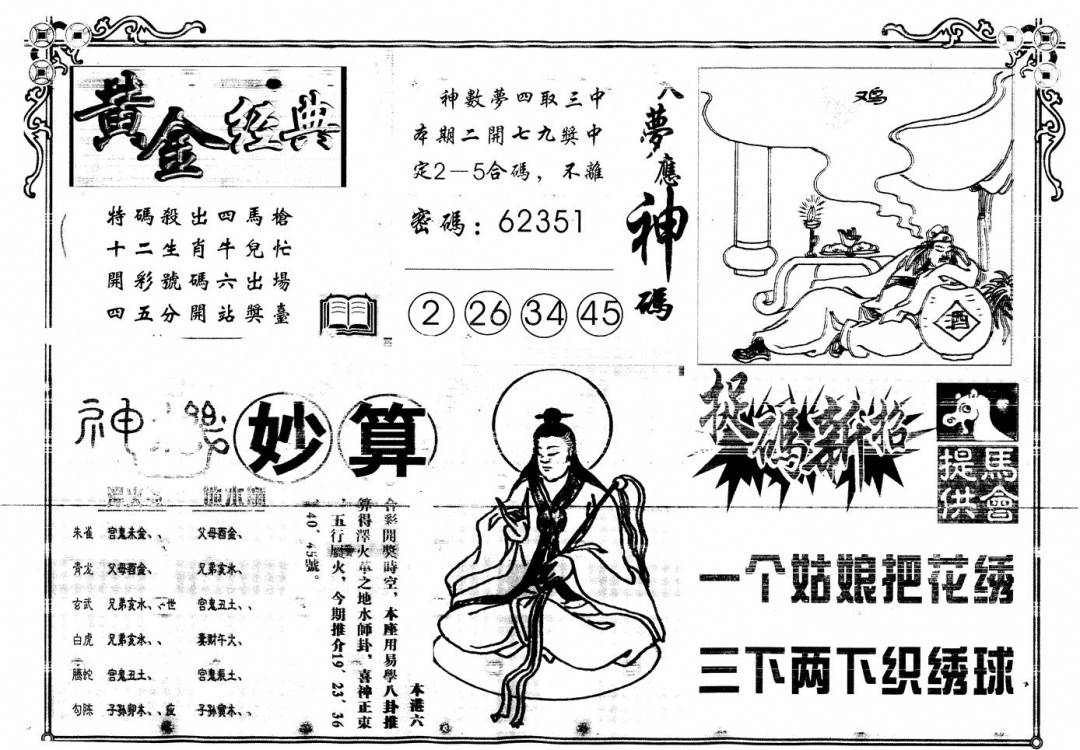 黃金經典
特碼殺出四馬槍
十二生肖牛兒忙
開彩號碼六出場
四五分開站獎臺
神數夢四取三中
本期二開七九獎中
定2—5合碼，不離
密碼：62351
2 26 34 45
八夢應神碼
鸡
酒
神機妙算
朱雀 宫鬼未金、、 父母酉金、
青龙 父母酉金、 兄弟亥水、
玄武 兄弟亥水、、世 宫鬼丑土、、
白虎 兄弟亥水、、 妻財午火、
螣蛇 宫鬼丑土、 宫鬼辰土、
勾陈 子孙卯木、、应 子孙寅木、、
本港六
合彩開獎時空，本座用易學八卦推
算得澤火革之地水師卦，喜神正東
，五行屬火，今期推介19、23、36
40、45號。
捉碼新招
馬會
提供
一个姑娘把花绣
三下两下织绣球